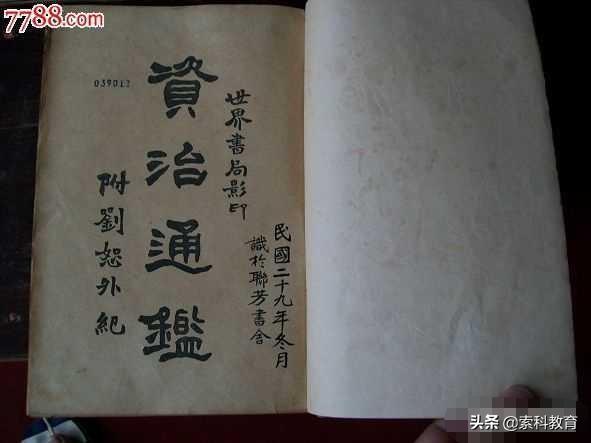 7788.com
039012
世界書局影印
資治通鑑
附劉恕外紀
民國二十九年冬月
識於聯芳書舍
头条 @索科教育